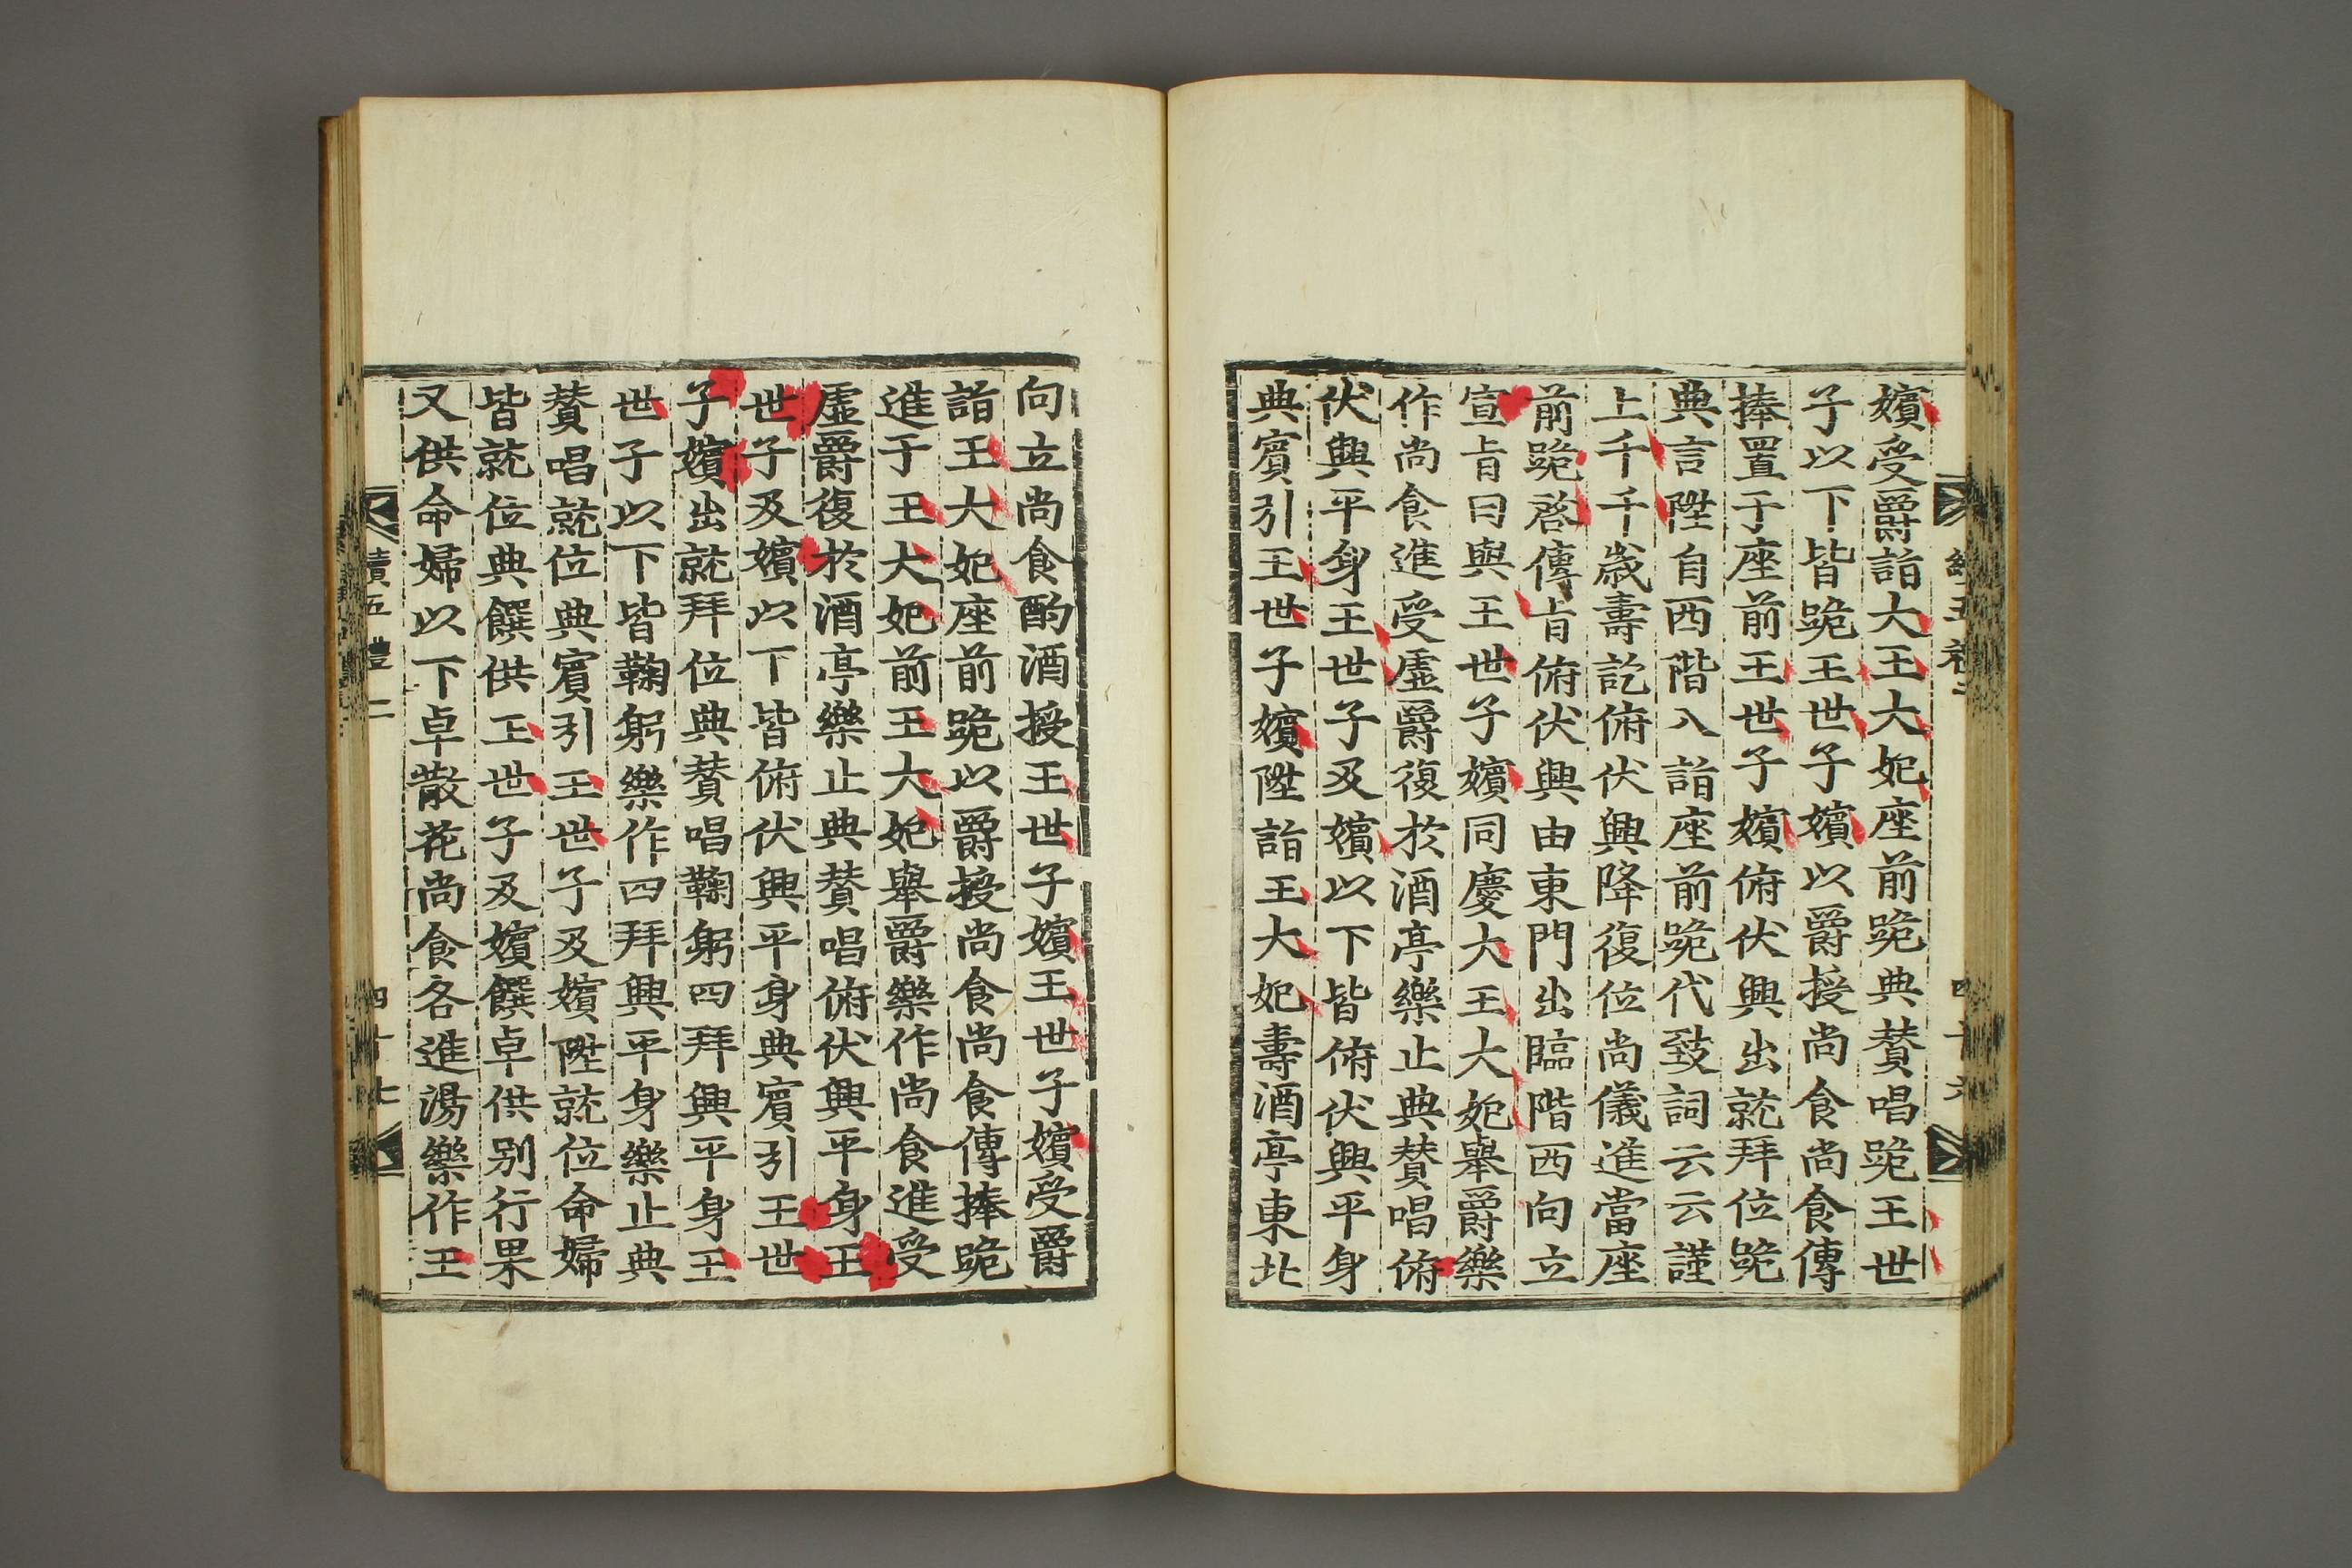 嬪受爵詣大王大妃座前跪典贊唱跪王世
子以下皆跪王世子嬪以爵授尙食尙食傳
捧置于座前王世子嬪俯伏興出就拜位跪
典言陞自西階入詣座前跪代致詞云云謹
上千千歲壽訖俯伏興降復位尙儀進當座
前跪啓傳旨俯伏興由東門出臨階西向立
宣旨曰與王世子嬪同慶大王大妃擧爵樂
作尙食進受虛爵復於酒亭樂止典贊唱俯
伏興平身王世子及嬪以下皆俯伏興平身
典賓引王世子嬪陞詣王大妃壽酒亭東北
向立尙食酌酒授王世子嬪王世子嬪受爵
詣王大妃座前跪以爵授尙食尙食傳捧跪
進于王大妃前王大妃擧爵樂作尙食進受
虛爵復於酒亭樂止典贊唱俯伏興平身王
世子及嬪以下皆俯伏興平身典賓引王世
子嬪出就拜位典贊唱鞠躬四拜興平身王
世子以下皆鞠躬樂作四拜興平身樂止典
贊唱就位典賓引王世子及嬪陞就位命婦
皆就位典饌供王世子及嬪饌卓供別行果
又供命婦以下卓散花尙食各進湯樂作王
續五禮二
四十七